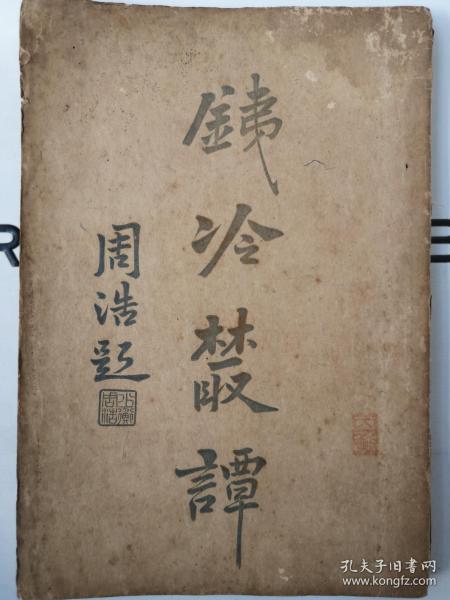 銕冷叢譚
周浩題
R
E
孔夫子旧书网
www.kongfz.com